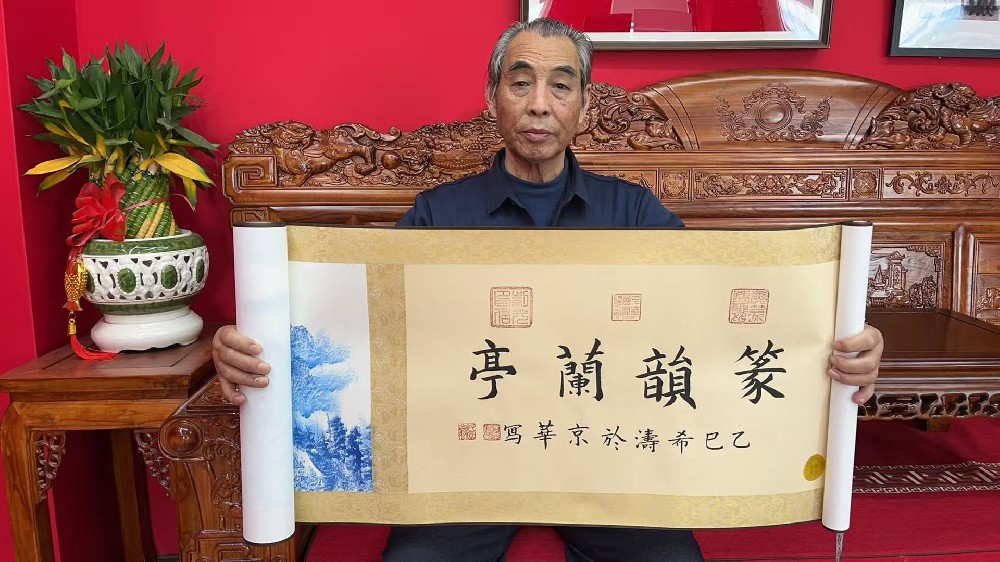 篆韻蘭亭
乙巳希濤於京華寫